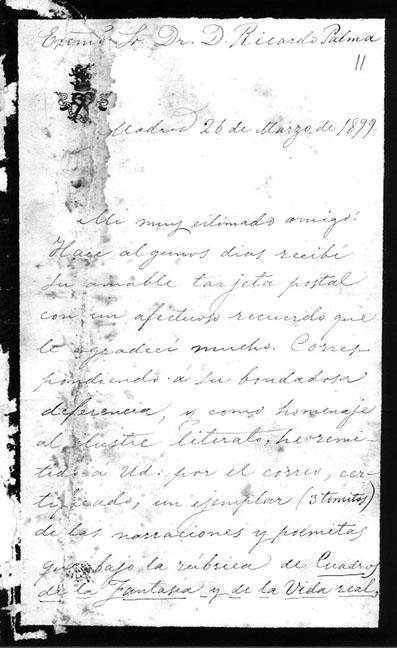 Excmo. Sr. Dr. D. Ricardo Palma
11
Madrid 26 de Marzo de 1899.
Mi muy estimado amigo:
Hace algunos dias recibí
su amable tarjeta postal
con un afectuoso recuerdo que
le agradecí mucho. Corres-
pondiendo á su bondadosa
deferencia, y como homenaje
al ilustre literato, he remi-
tido á Ud. por el correo, cer-
tificado, un ejemplar (3 tomitos)
de las narraciones y poemitas
que bajo la rúbrica de Cuadros
de la Fantasia y de la Vida real,